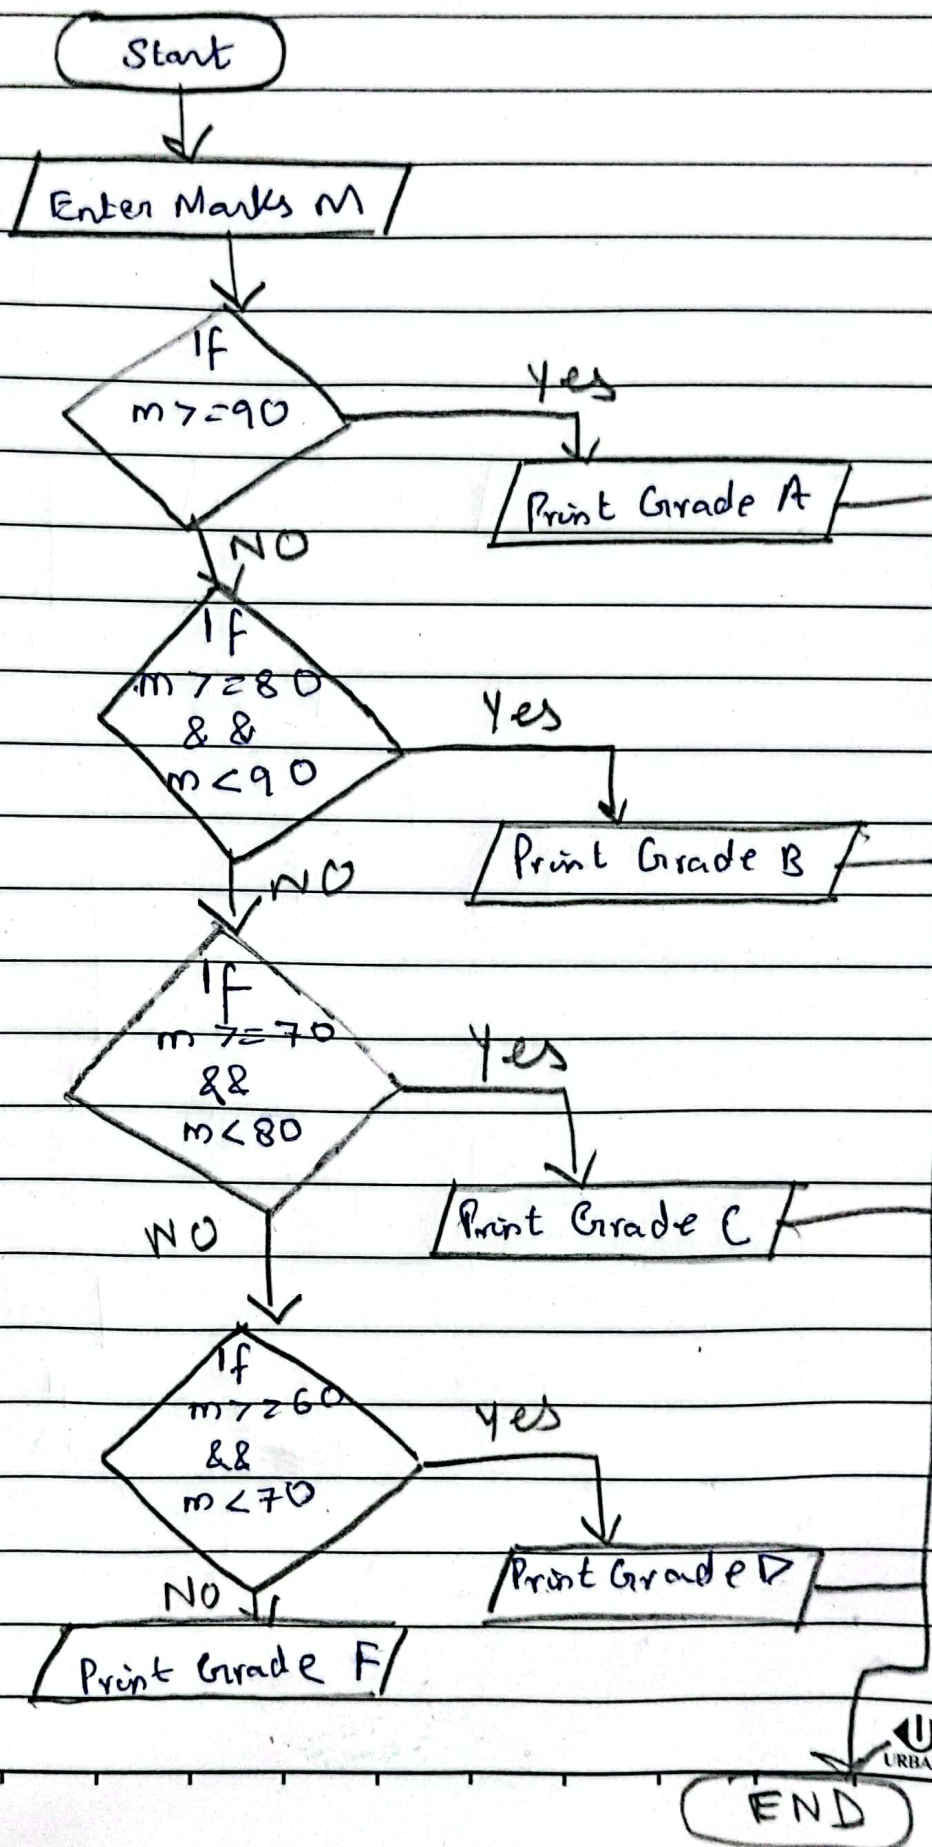 Start
Enter Marks M
If
m >= 90
Yes
Print Grade A
NO
If
m >= 80
&&
m < 90
Yes
Print Grade B
NO
If
m >= 70
&&
m < 80
Yes
Print Grade C
NO
If
m >= 60
&&
m < 70
Yes
Print Grade D
NO
Print Grade F
URBA
END